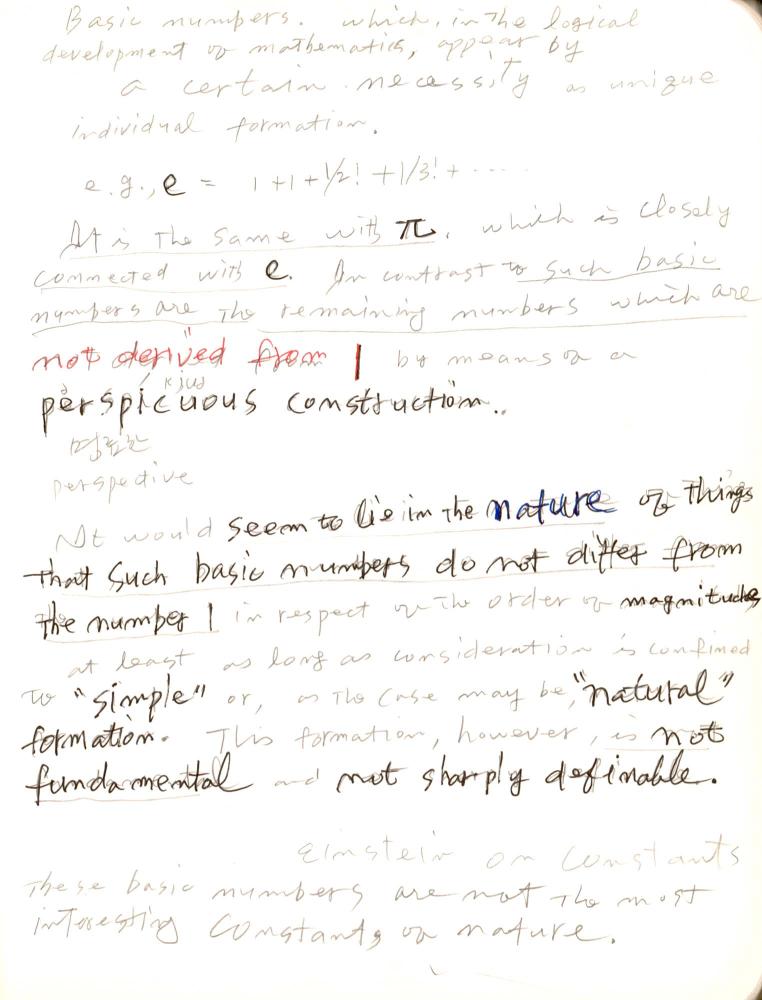 Basic numbers. which, in the logical
development of mathematics, appear by
a certain necessity as unique
individual formation.
e.g., e = 1+1+1/2! +1/3! + ·····
It is the same with π, which is closely
connected with e. In contrast to such basic
numbers are the remaining numbers which are
not derived from 1 by means of a
perspicuous construction..
명료한
perspective
It would seem to lie in the nature of things
that such basic numbers do not differ from
the number 1 in respect of the order of magnitude
at least as long as consideration is confined
to "simple" or, as the case may be, "natural"
formation. This formation, however, is not
fundamental and not sharply definable.
Einstein on constants
These basic numbers are not the most
interesting constants of nature.